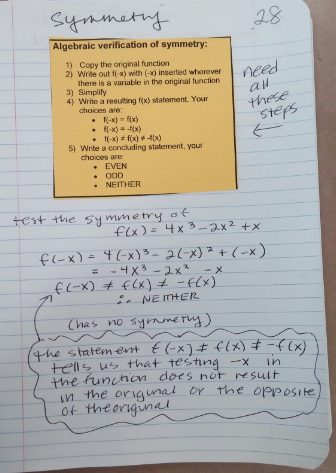 Symmetry
28
Algebraic verification of symmetry:
1) Copy the original function
2) Write out f(-x) with (-x) inserted wherever
there is a variable in the original function
3) Simplify
4) Write a resulting f(x) statement. Your
choices are:
• f(-x) = f(x)
• f(-x) = -f(x)
• f(-x) ≠ f(x) ≠ -f(x)
5) Write a concluding statement, your
choices are:
• EVEN
• ODD
• NEITHER
need
all
these
steps
←
test the symmetry of
f(x) = 4x³ - 2x² + x
f(-x) = 4(-x)³ - 2(-x)² + (-x)
= -4x³ - 2x² - x
f(-x) ≠ f(x) ≠ -f(x)
∴ NEITHER
(has no symmetry)
the statement f(-x) ≠ f(x) ≠ -f(x)
tells us that testing -x in
the function does not result
in the original or the opposite
of the original